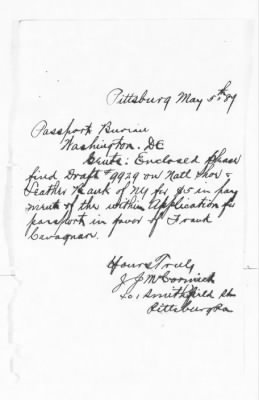 Pittsburg May 5th 89
Passport Bureau
Washington, DC
Gents: Enclosed please
find Draft #9929 on Natl Shoe &
Leather Bank of NY for $5 in pay
ment of the within Application for
passport in favor of Frank
Cavagnaro.
Yours Truly
J J McCormick
401 Smithfield St
Pittsburg Pa